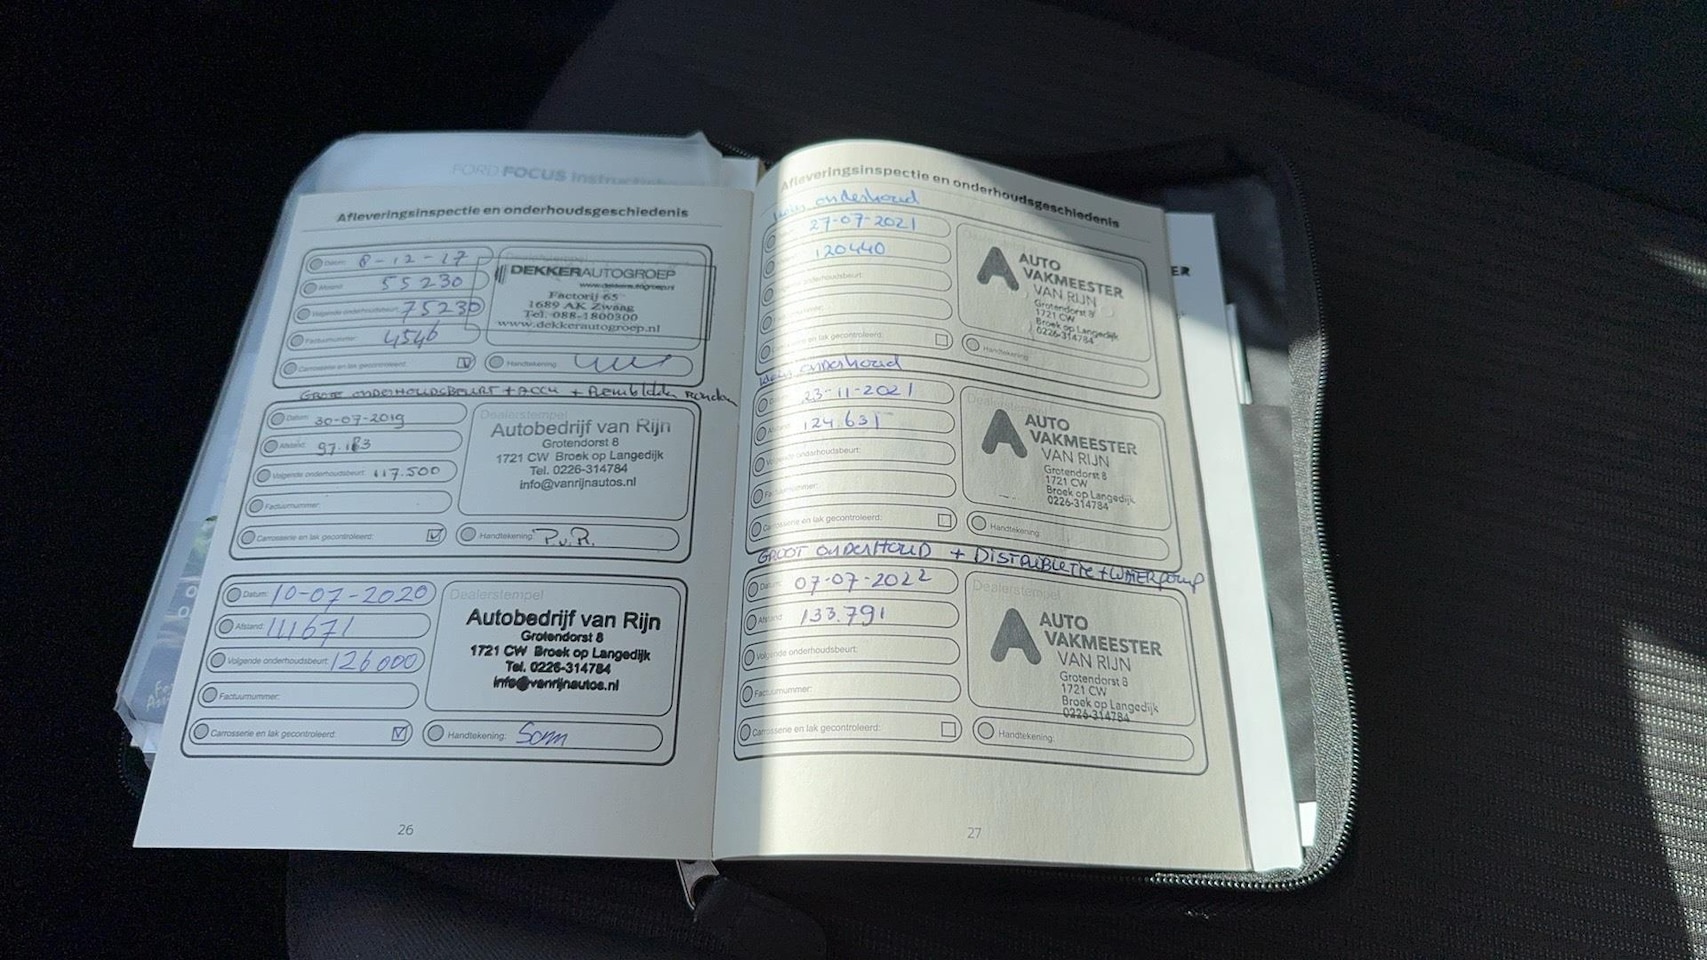 FORD FOCUS
Afleveringsinspectie en onderhoudsgeschiedenis
Datum: 8-12-17
Afstand: 55230
Volgende onderhoudsbeurt: 75230
Factuurnummer: 4546
Carrosserie en lak gecontroleerd:
DEKKERAUTOGROEP
www.dekkerautogroep.nl
Factorij 65
1689 AK Zwaag
Tel. 088-1800300
www.dekkerautogroep.nl
Handtekening:
GROTE ONDERHOUDSBEURT + ACCU + Remblokken rondom
Datum: 30-07-2019
Afstand: 97.183
Volgende onderhoudsbeurt: 117.500
Factuurnummer:
Carrosserie en lak gecontroleerd:
Dealerstempel
Autobedrijf van Rijn
Grotendorst 8
1721 CW Broek op Langedijk
Tel. 0226-314784
info@vanrijnautos.nl
Handtekening: P.v.R.
Datum: 10-07-2020
Afstand: 111671
Volgende onderhoudsbeurt: 126000
Factuurnummer:
Carrosserie en lak gecontroleerd:
Dealerstempel
Autobedrijf van Rijn
Grotendorst 8
1721 CW Broek op Langedijk
Tel. 0226-314784
info@vanrijnautos.nl
Handtekening: Som
26
Afleveringsinspectie en onderhoudsgeschiedenis
onderhoud
27-07-2021
120440
onderhoudsbeurt:
Carrosserie en lak gecontroleerd:
AUTO
VAKMEESTER
VAN RIJN
Grotendorst 8
1721 CW
Broek op Langedijk
0226-314784
Handtekening:
onderhoud
23-11-2021
124.631
Volgende onderhoudsbeurt:
Factuurnummer:
Carrosserie en lak gecontroleerd:
AUTO
VAKMEESTER
VAN RIJN
Grotendorst 8
1721 CW
Broek op Langedijk
0226-314784
Handtekening:
GROOT ONDERHOUD + DISTRIBUTIE + WATERPOMP
Datum: 07-07-2022
Afstand: 133.791
Volgende onderhoudsbeurt:
Factuurnummer:
Carrosserie en lak gecontroleerd:
Dealerstempel
AUTO
VAKMEESTER
VAN RIJN
Grotendorst 8
1721 CW
Broek op Langedijk
0226-314784
Handtekening:
27